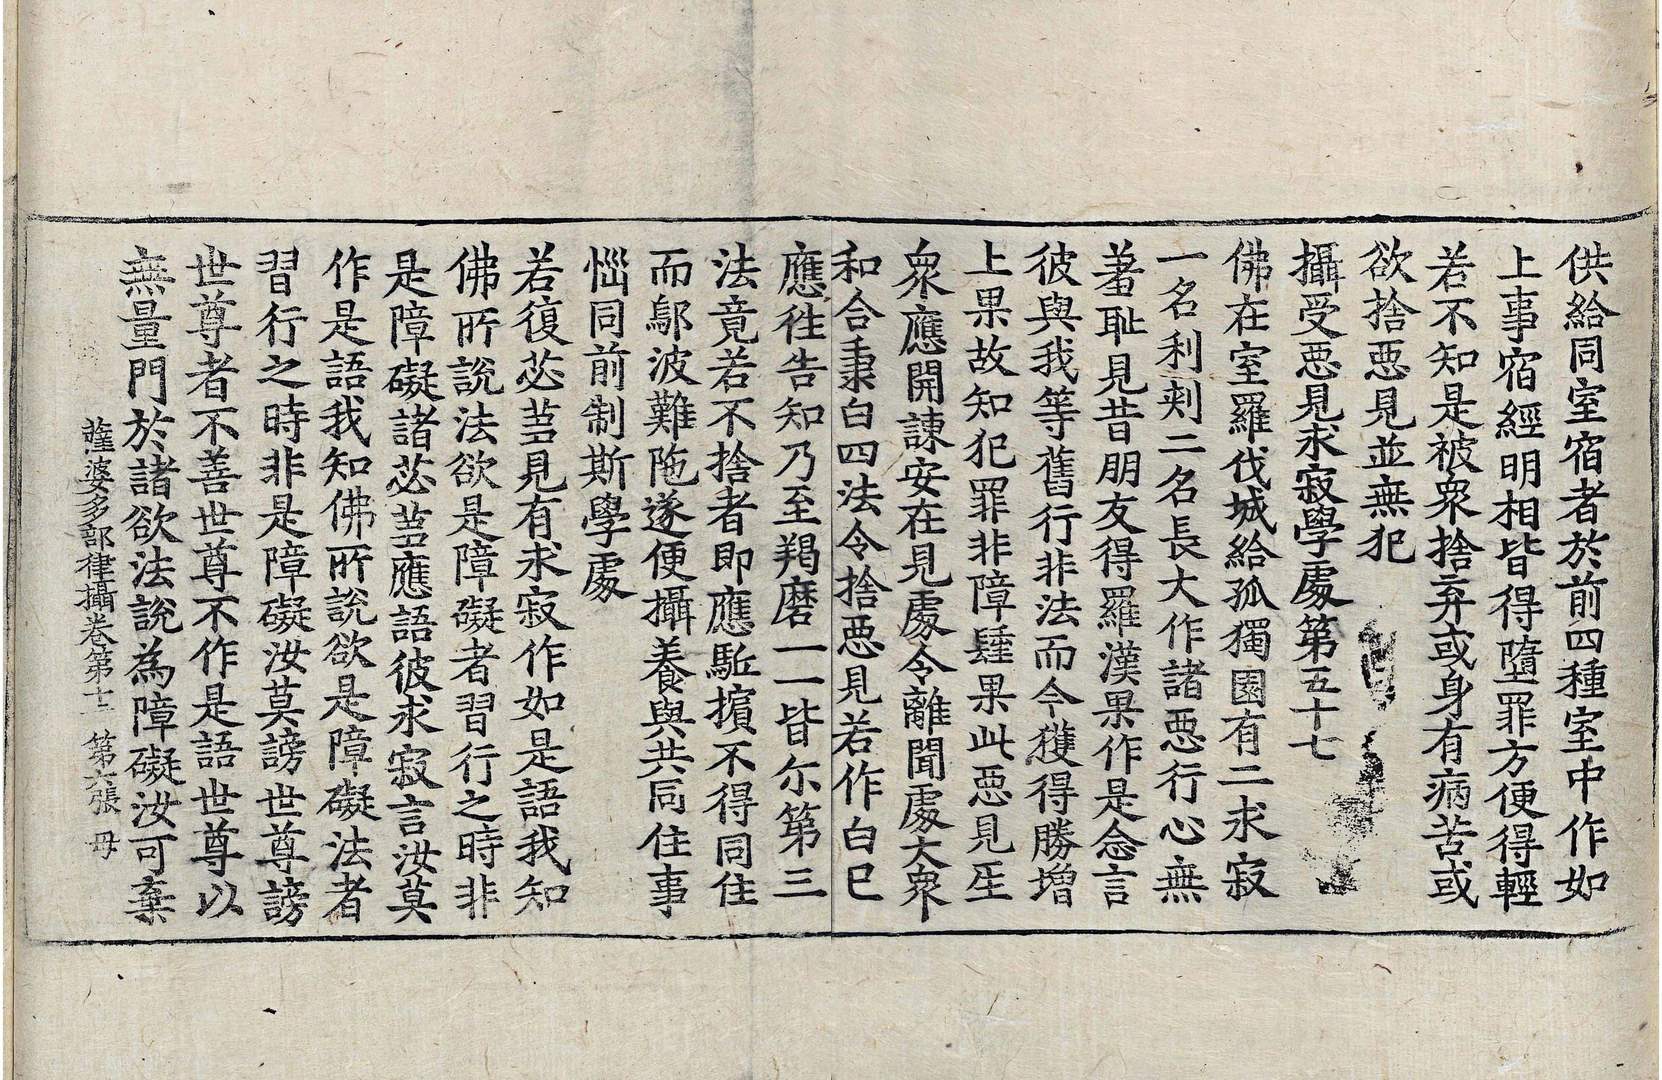 供給同室宿者於前四種室中作如
上事宿經明相皆得墮罪方便得輕
若不知是被衆捨弃或身有病苦或
欲捨惡見並無犯
攝受惡見求寂學處第五十七
佛在室羅伐城給孤獨園有二求寂
一名利刾二名長大作諸惡行心無
羞恥見昔朋友得羅漢果作是念言
彼與我等舊行非法而今獲得勝增
上果故知犯罪非障𨽻果此惡見生
衆應開諫安在見處令離聞處大衆
和合秉白四法令捨惡見若作白已
應往告知乃至羯磨一一皆尒第三
法竟若不捨者即應駈擯不得同住
而鄔波難陁遂便攝養與共同住事
惱同前制斯學處
若復苾芻見有求寂作如是語我知
佛所說法欲是障礙者習行之時非
是障礙諸苾芻應語彼求寂言汝莫
作是語我知佛所說欲是障礙法者
習行之時非是障礙汝莫謗世尊謗
世尊者不善世尊不作是語世尊以
無量門於諸欲法說為障礙汝可棄
薩婆多部律攝卷第十三 第六張 毋